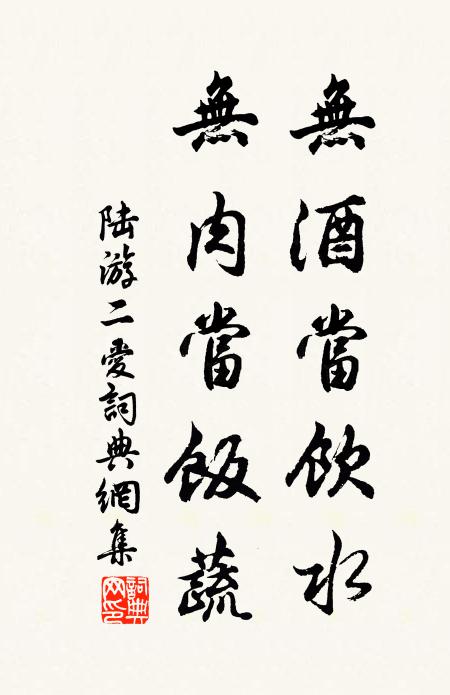 無酒當飲水
無肉當飯蔬
陆游二愛詞典網集
詞典網印